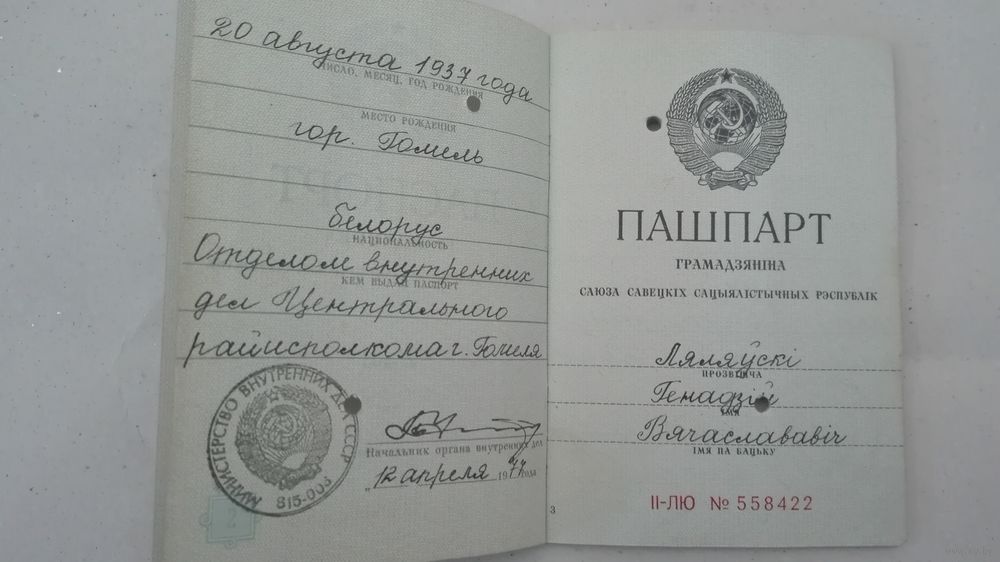 20 августа 1937 года
ЧИСЛО, МЕСЯЦ, ГОД РОЖДЕНИЯ
МЕСТО РОЖДЕНИЯ
гор. Гомель
белорус
НАЦИОНАЛЬНОСТЬ
Отделом внутренних
КЕМ ВЫДАН ПАСПОРТ
дел Центрального
райисполкома г. Гомеля
МИНИСТЕРСТВО ВНУТРЕННИХ ДЕЛ СССР
815-003
Начальник органа внутренних дел
„12 апреля 1977 года
2
3
ПАШПАРТ
ГРАМАДЗЯНІНА
САЮЗА САВЕЦКІХ САЦЫЯЛІСТЫЧНЫХ РЭСПУБЛІК
Ляляўскі
ПРОЗВІШЧА
Генадзій
ІМЯ
Вячаслававіч
ІМЯ ПА БАЦЬКУ
II-ЛЮ № 558422